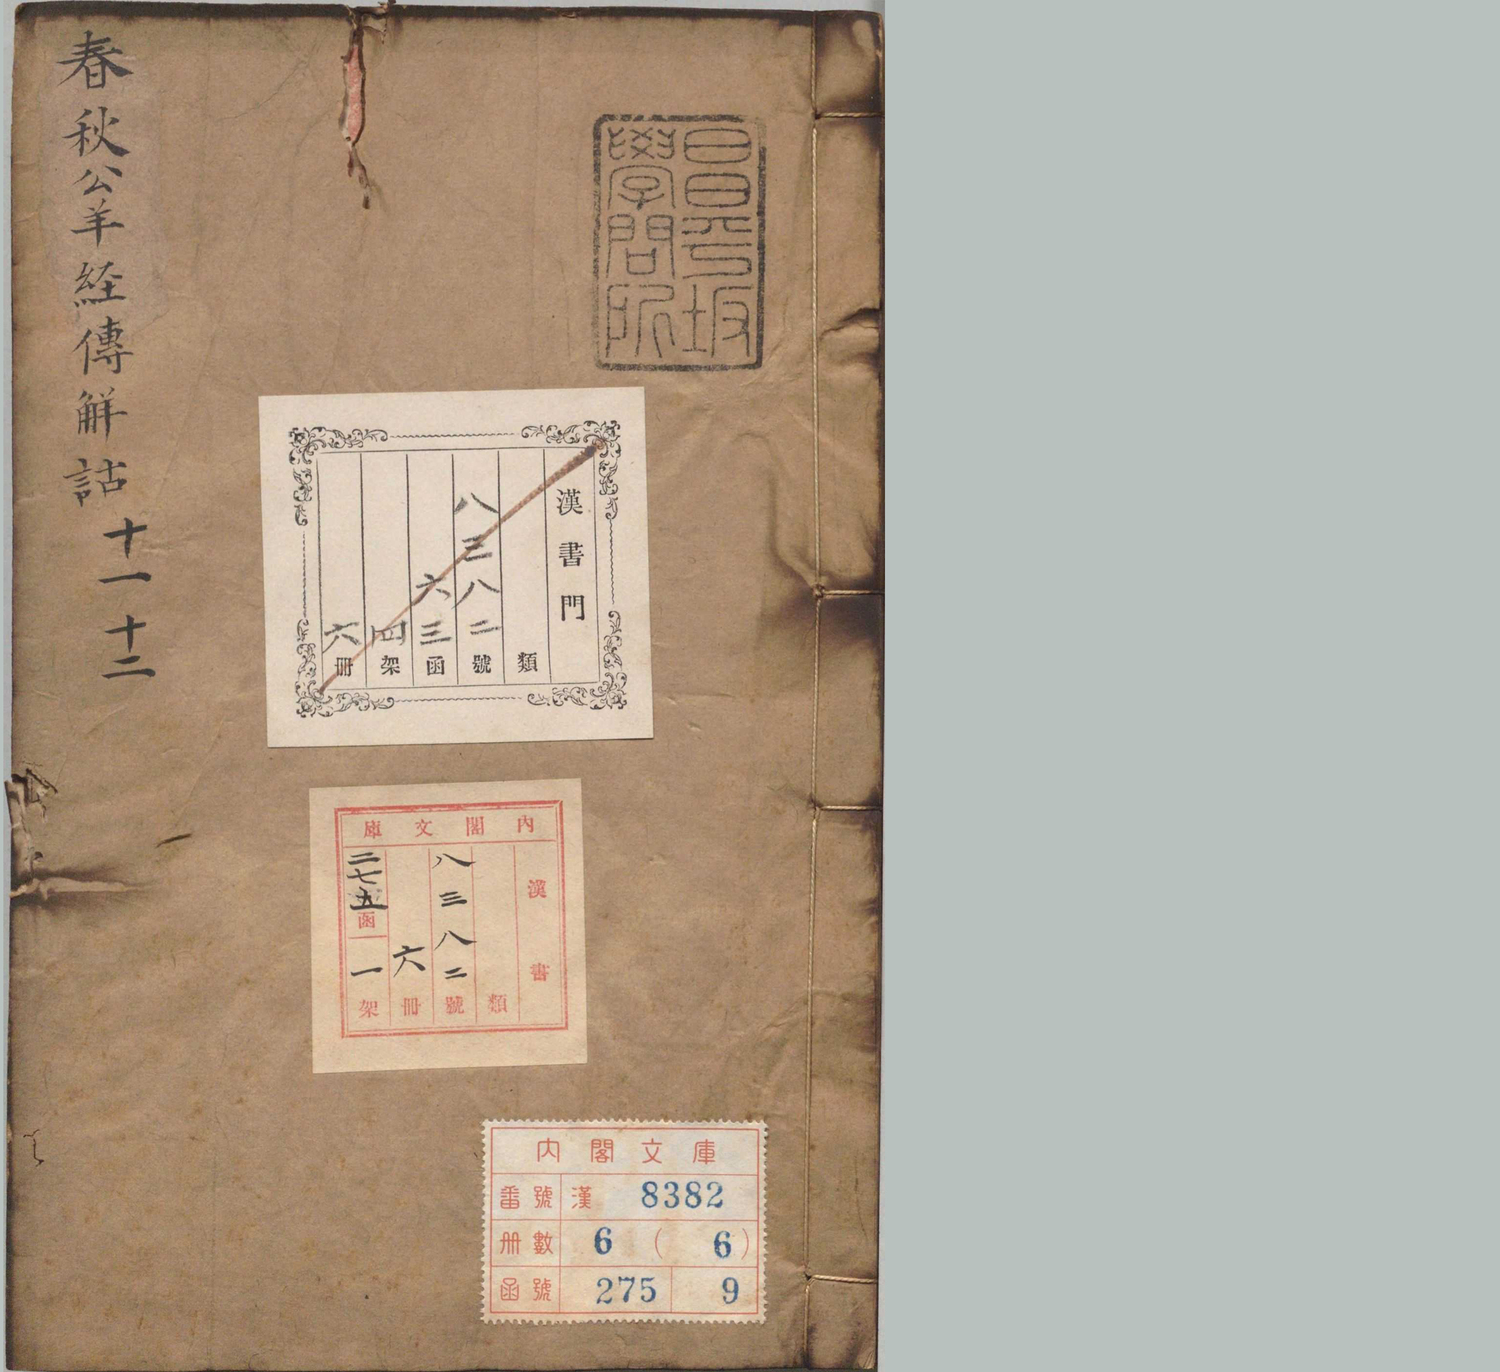 春秋公羊経傳解詁 十一 十二
昌平坂
學問所
漢書門
類
八三八二號
六三函
四架
六冊
內閣文庫
漢書
類
八三八二號
六冊
二七五函
一架
内閣文庫
番號 漢 8382
册數 6 ( 6 )
函號 275 9